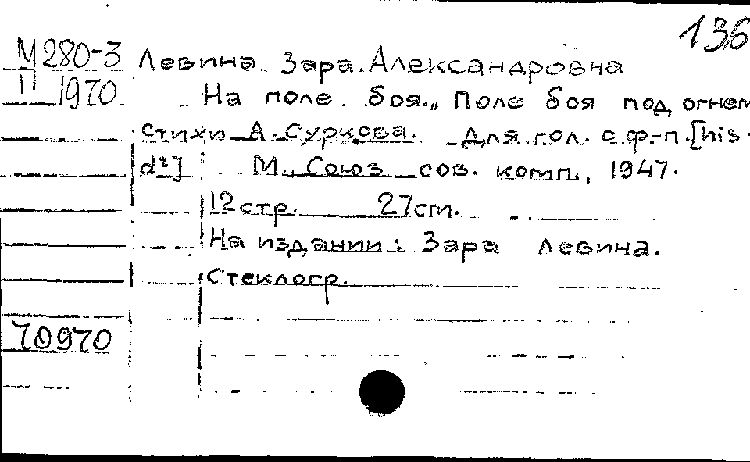 136
М280-3
II 1970
Левина Зара Александровна
На поле боя. „Поле боя под огнем
стихи А. Суркова. Для гол. с ф.-п. [his-
d²] М., Союз сов. комп., 1947.
12 стр. 27 cm.
На издании: Зара Левина.
Стеклогр.
70970